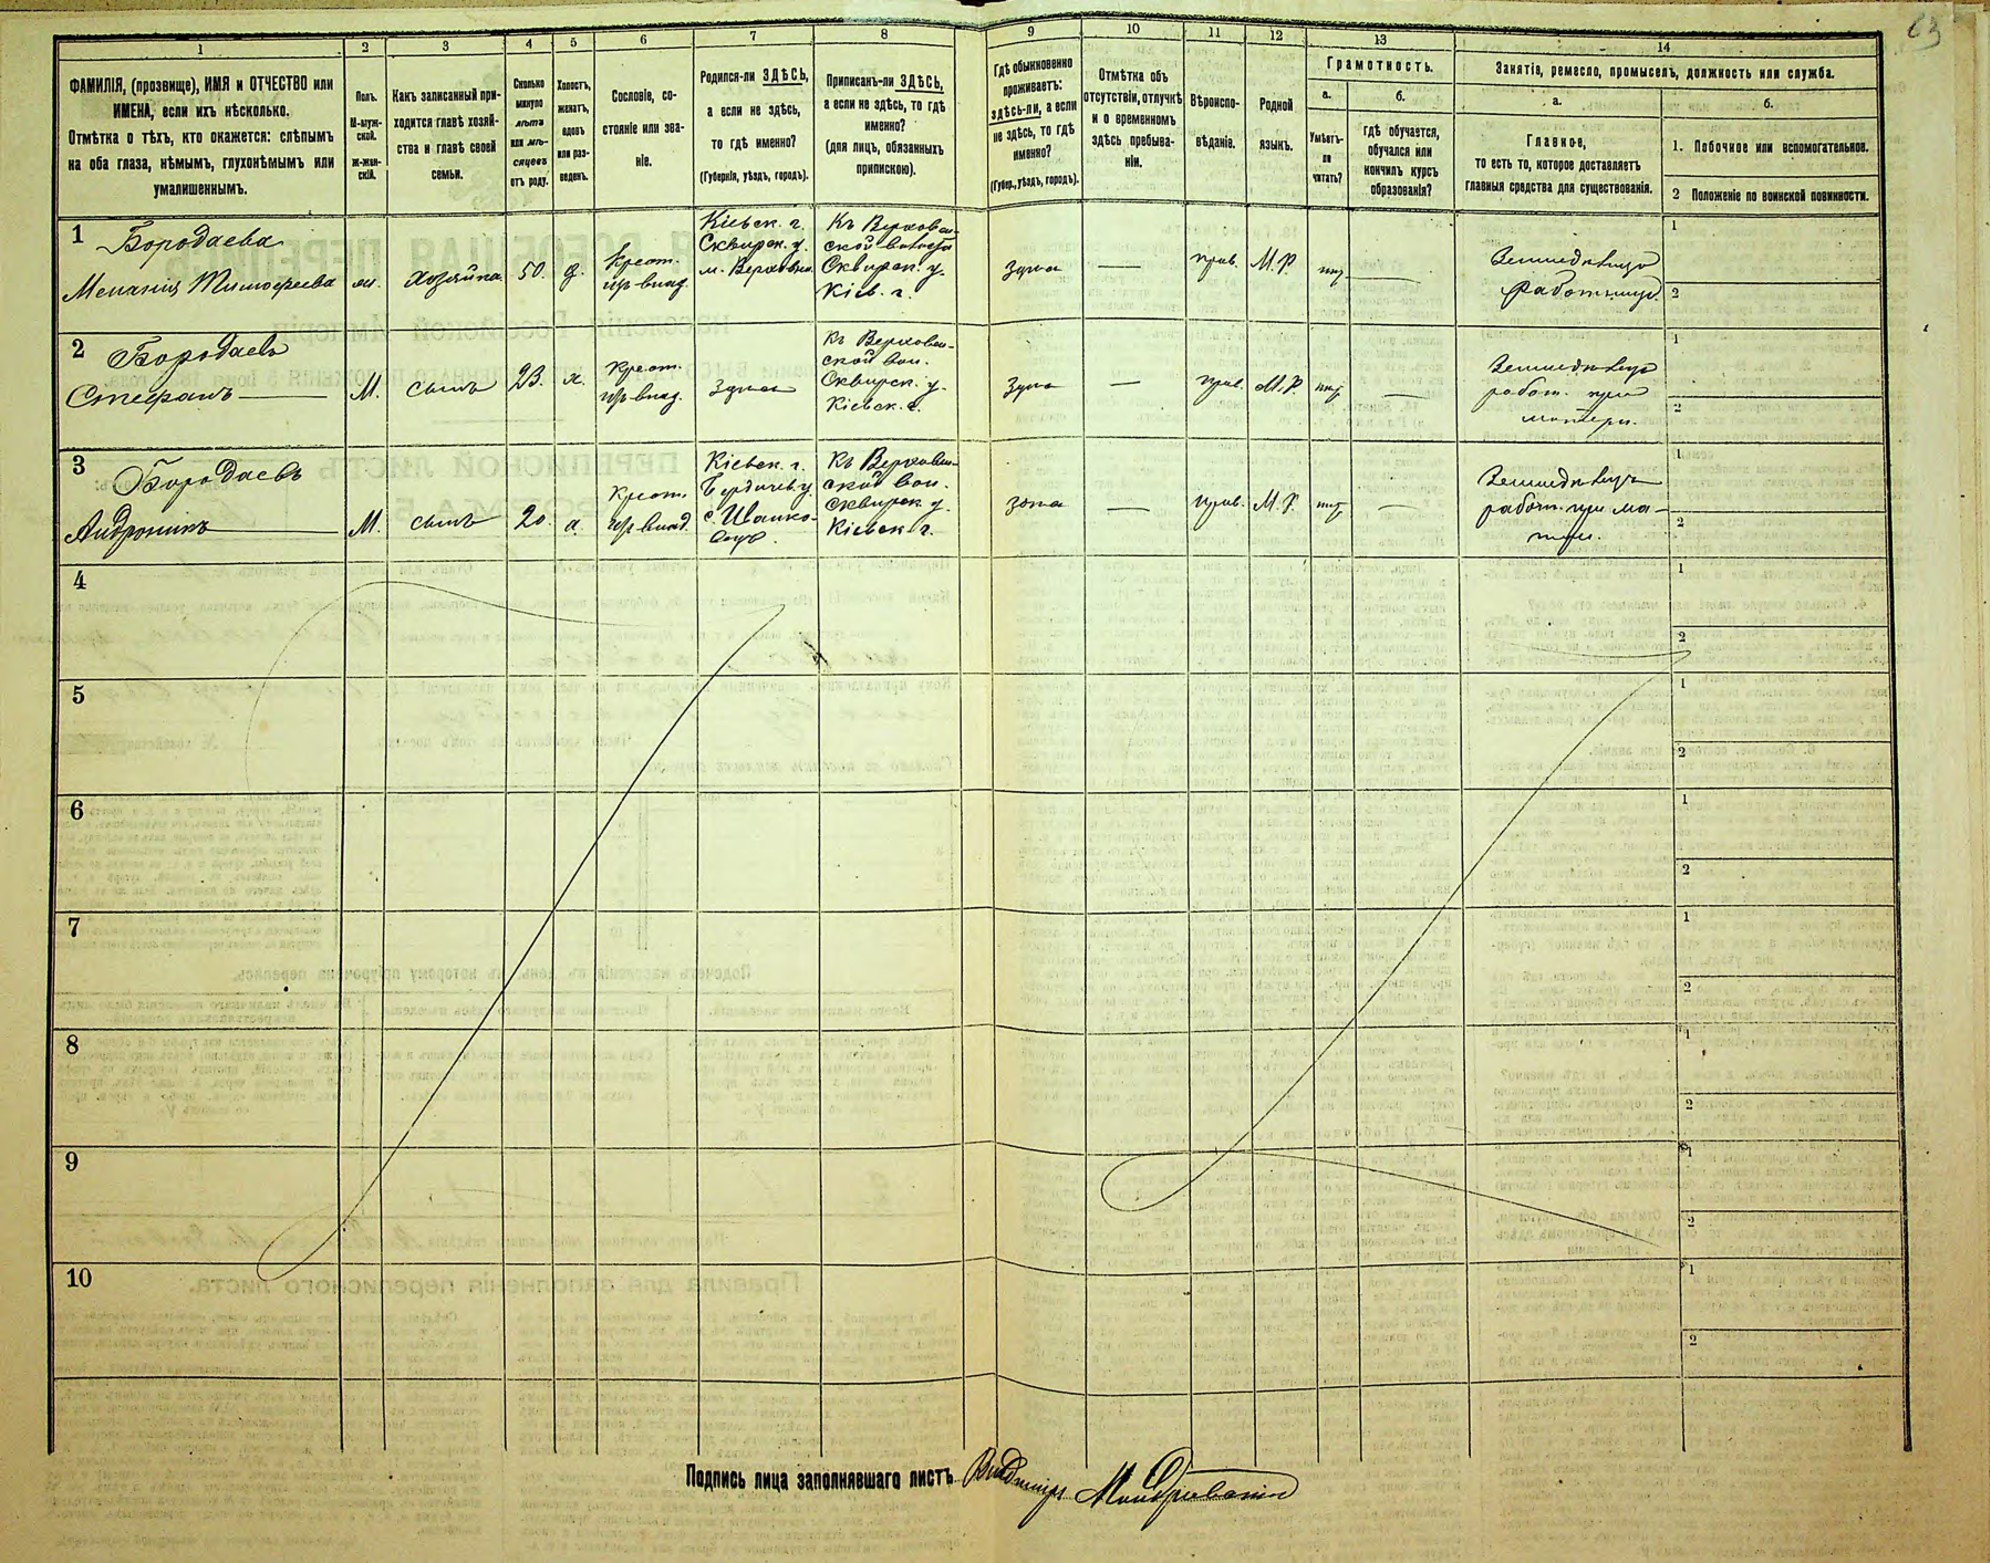 63
1 2 3 4 5 6 7 8 9 10 11 12 13 14
ФАМИЛІЯ, (прозвище), ИМЯ и ОТЧЕСТВО или
ИМЕНА, если ихъ нѣсколько.
Отмѣтка о тѣхъ, кто окажется: слѣпымъ
на оба глаза, нѣмымъ, глухонѣмымъ или
умалишеннымъ.
Полъ.
М-муж-
ской.
Ж-жен-
скій.
Какъ записанный при-
ходится главѣ хозяй-
ства и главѣ своей
семьи.
Сколько
минуло
лѣтъ
или мѣ-
сяцевъ
отъ роду.
Холостъ,
женатъ,
вдовъ
или раз-
веденъ.
Сословіе, со-
стояніе или зва-
ніе.
Родился-ли ЗДѢСЬ,
а если не здѣсь,
то гдѣ именно?
(Губернія, уѣздъ, городъ).
Приписанъ-ли ЗДѢСЬ,
а если не здѣсь, то гдѣ
именно?
(для лицъ, обязанныхъ
припискою).
Гдѣ обыкновенно
проживаетъ:
здѣсь-ли, а если
не здѣсь, то гдѣ
именно?
(Губер., уѣздъ, городъ).
Отмѣтка объ
отсутствіи, отлучкѣ
и о временномъ
здѣсь пребыва-
ніи.
Вѣроиспо-
вѣданіе.
Родной
языкъ.
Грамотность.
а.
Умѣетъ-
ли
читать?
б.
гдѣ обучается,
обучался или
кончилъ курсъ
образованія?
Занятіе, ремесло, промыселъ, должность или служба.
а.
Главное,
то есть то, которое доставляетъ
главныя средства для существованія.
б.
1. Побочное или вспомогательное.
2 Положеніе по воинской повинности.
1
Бородаева
Меланія Тимофеева
ж.
хозяйка
50.
в.
Крест.
из влад.
Кіевск. г.
Сквирск. у.
м. Верховня
Къ Верховен-
ской волости
Сквирск. у.
Кіев. г.
здѣсь
—
прав.
М. Р.
нѣт
—
Земледѣлица
работница
1
2
2
Бородаевъ
Стефанъ
М.
сынъ
23.
х.
Крест.
из влад.
здѣсь
Къ Верховен-
ской вол.
Сквирск. у.
Кіевск. г.
здѣсь
—
прав.
М. Р.
нѣт
—
Земледѣлецъ
работ. при
матери.
1
2
3
Бородаевъ
Андроникъ
М.
сынъ
20.
х.
Крест.
из влад.
Кіевск. г.
Бердичев. у.
Къ Верховен-
ской вол.
Сквирск. у.
Кіевск. г.
здѣсь
—
прав.
М. Р.
нѣт
—
Земледѣлецъ
работ. при ма-
тери.
1
2
4
1
2
5
1
2
6
1
2
7
1
2
8
1
2
9
1
2
10
1
2
Подпись лица заполнявшаго листъ Владиміръ